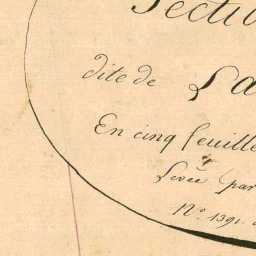 Secti
dite de La
En cinq feuille
Levée par
N.º 1391.